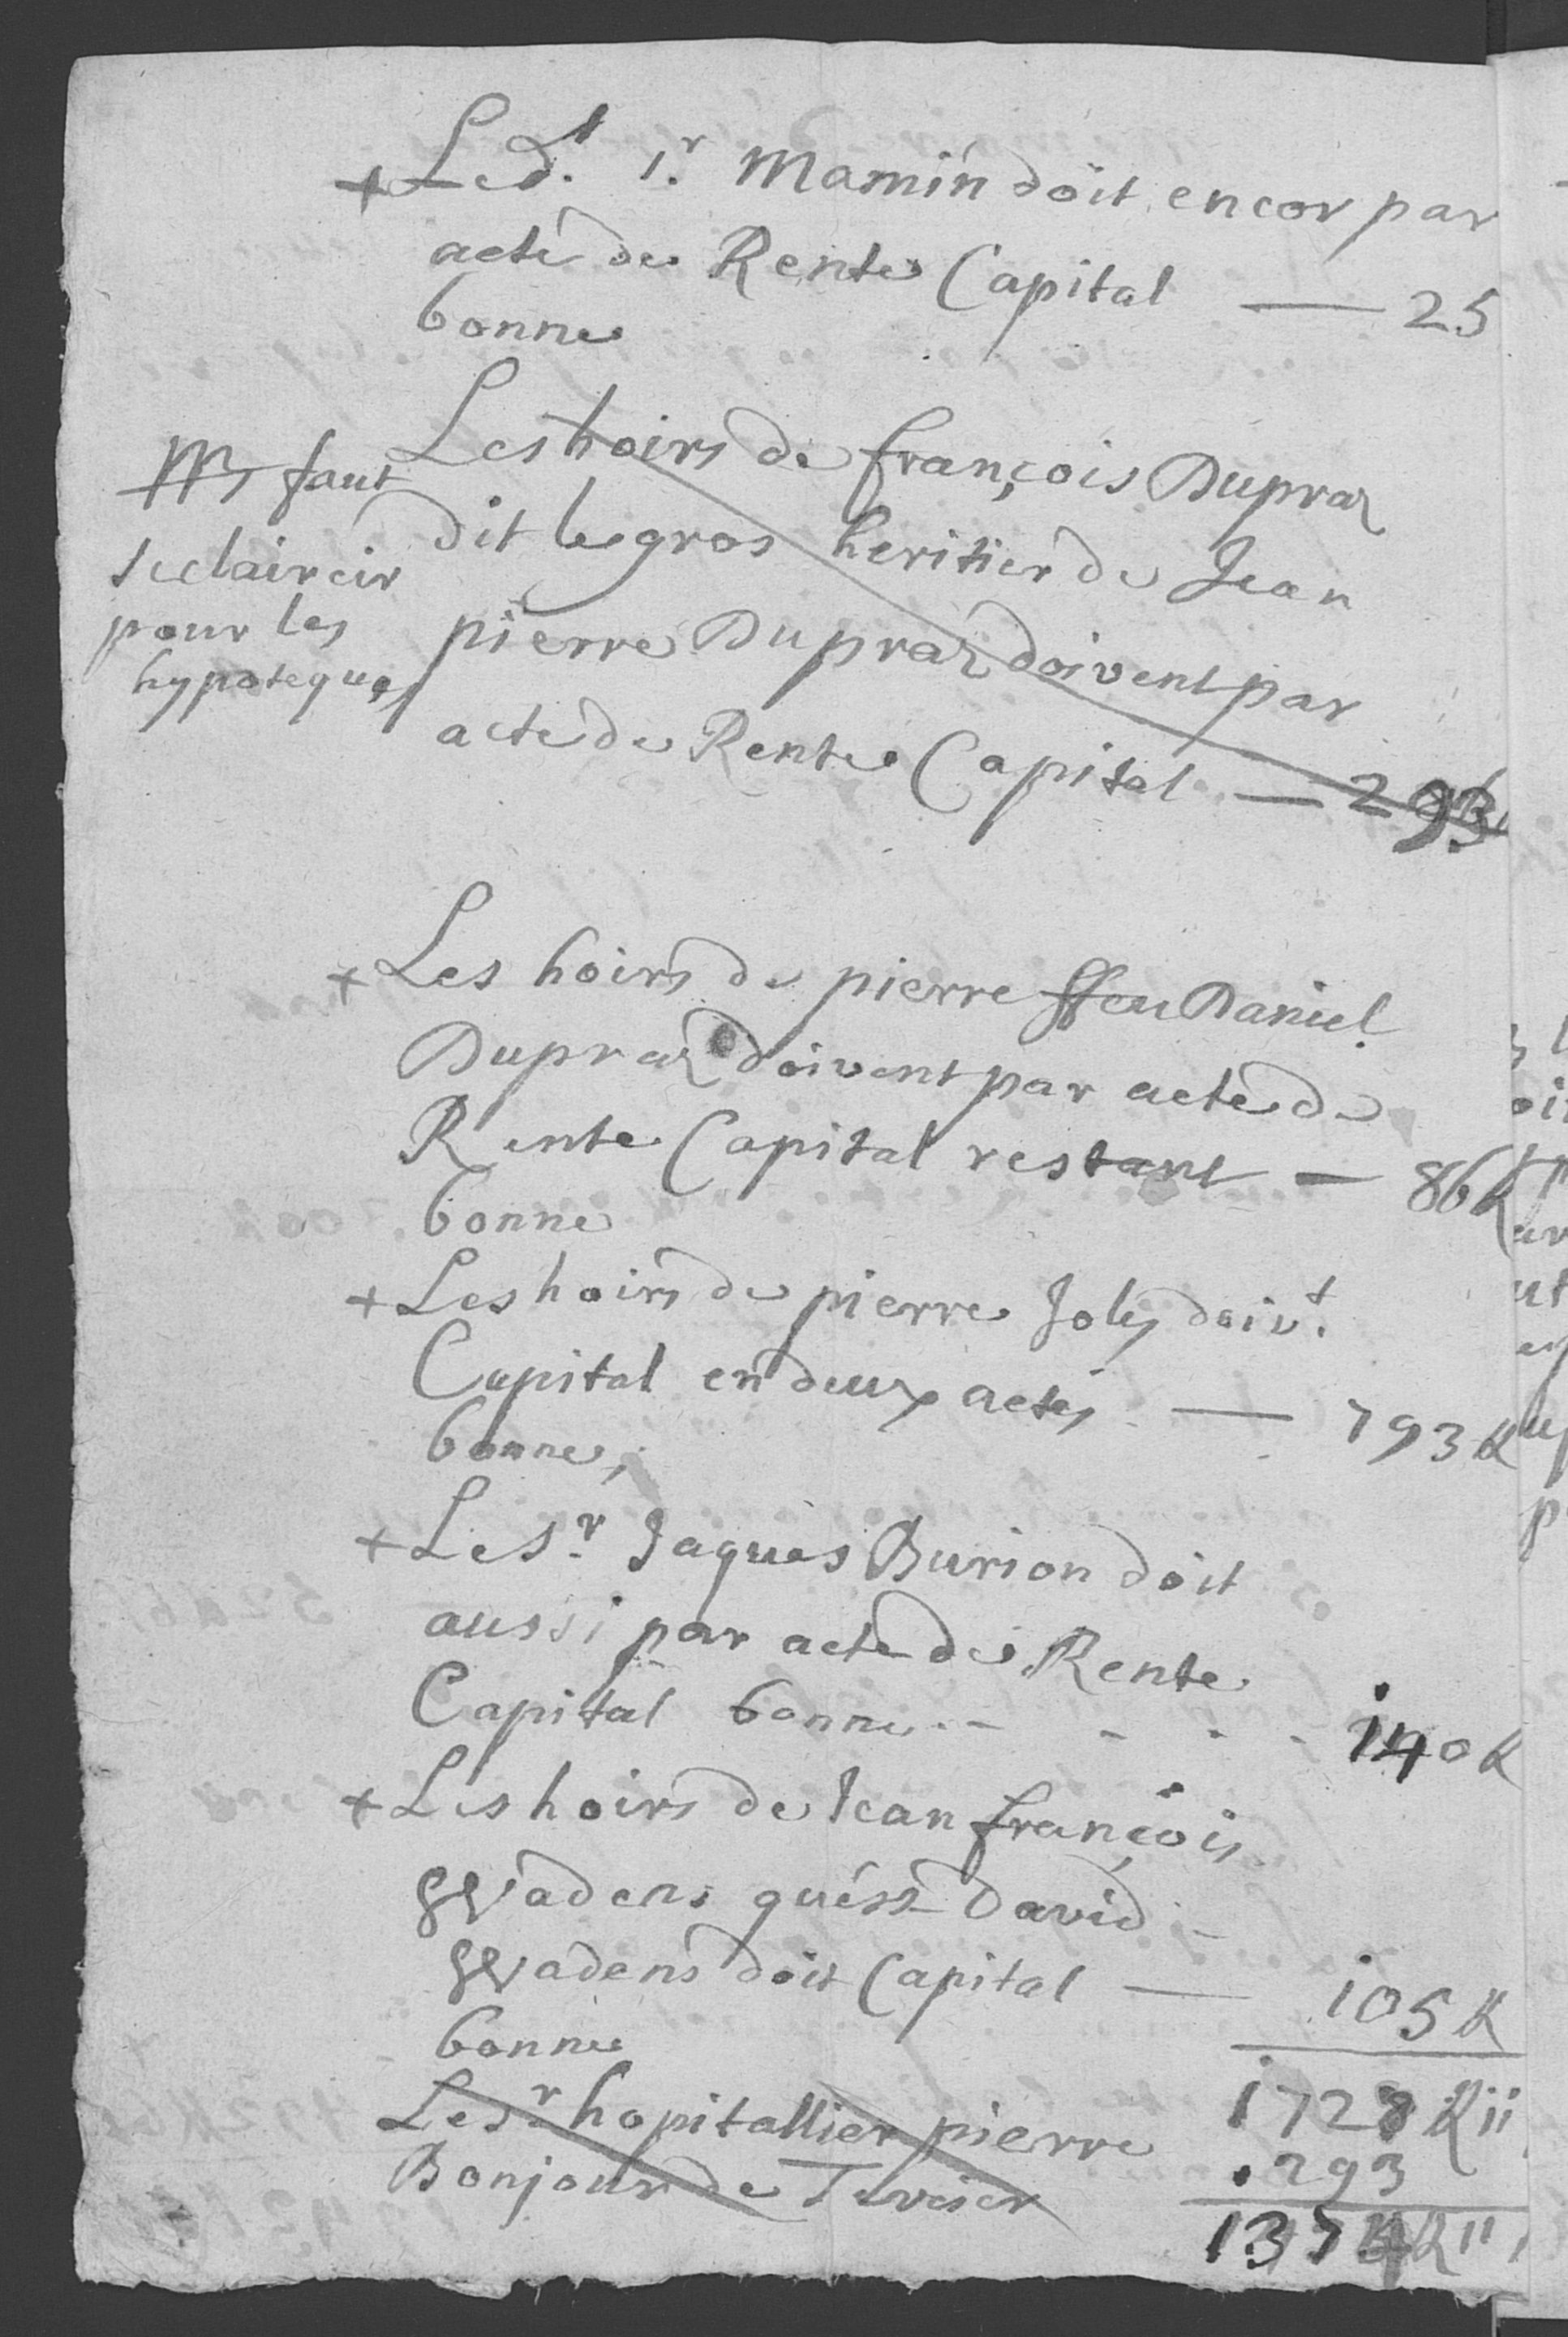 + Led.t Sr. Mamin doit encor par
acte de Rente Capital — 25
bonne
Les hoirs de françois Dupraz
dit le gros heritier de Jean
pierre Dupraz doivent par
acte de Rente Capital — 293
faut
seclaircir
pour les
hypoteques
+ Les hoirs de pierre ffeu Daniel
Dupraz doivent par acte de
Rente Capital restant — 86
bonne
+ Les hoirs de pierre Joly doiv.t
Capital en deux actes — 793
bonne,
+ Le Sr. Jaques Burion doit
aussi par acte de Rente
Capital bonne - - - 140
+ Les hoirs de Jean françois
Wadens David
Wadens doit Capital — 105
bonne
Le Sr. hopitallier pierre
Bonjour de
1728
293